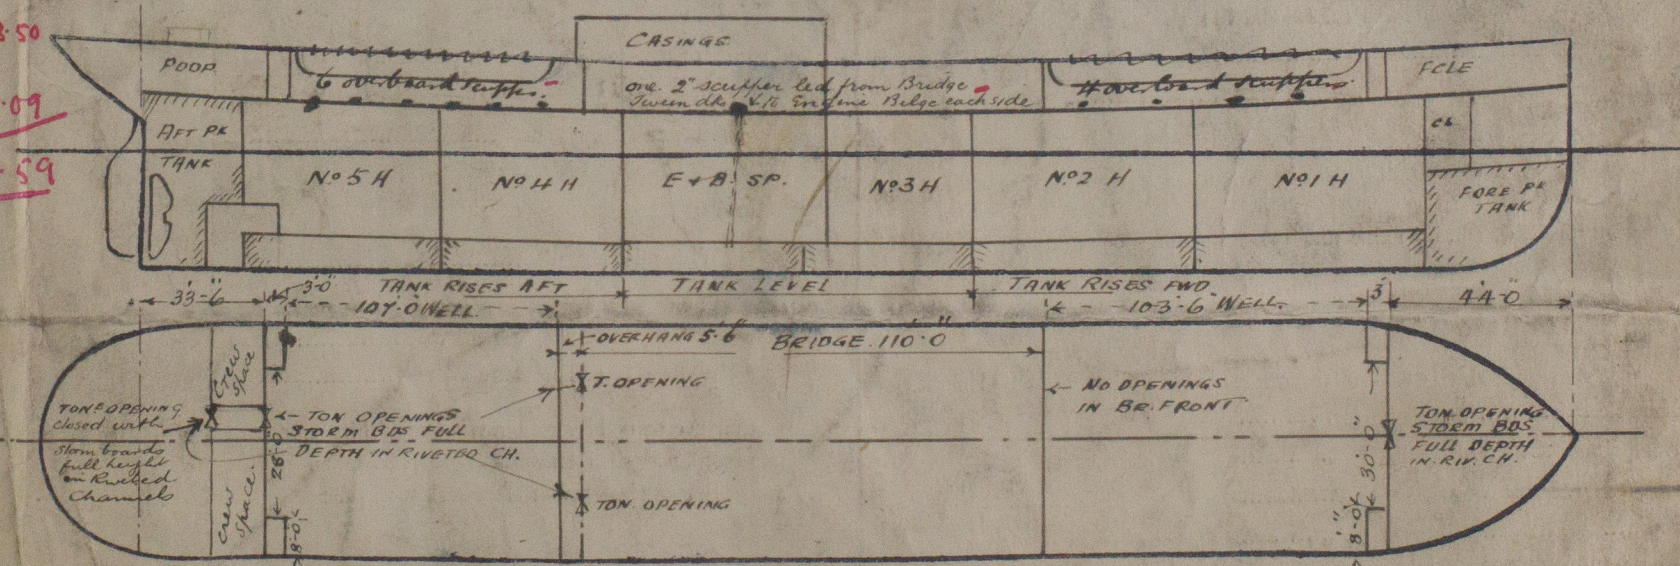 3.50
.09
.59
CASINGS
POOP
6 overboard scuppers.
one 2" scupper led from Bridge
Tween dks to Engine Bilge each side
4 overboard scuppers
FCLE
AFT PK
TANK
No 5 H
No 4 H
E & B. SP.
No 3 H
No 2 H
No 1 H
FORE PK
TANK
33'-6"
3'-0
TANK RISES AFT
TANK LEVEL
TANK RISES FWD
3'
44'-0"
107'-0 WELL.
103'-6 WELL.
OVERHANG 5'-6"
BRIDGE. 110'-0"
Crew
space
T. OPENING
NO OPENINGS
IN BR. FRONT
TONE OPENING
closed with
storm boards
full height
in Riveted
Channels
TON OPENINGS
STORM BDS FULL
DEPTH IN RIVETED CH.
28'-0"
30'-0"
TON. OPENING
STORM BDS
FULL DEPTH
IN RIV. CH.
Crew
space.
TON. OPENING
8'-0"
8'-0"